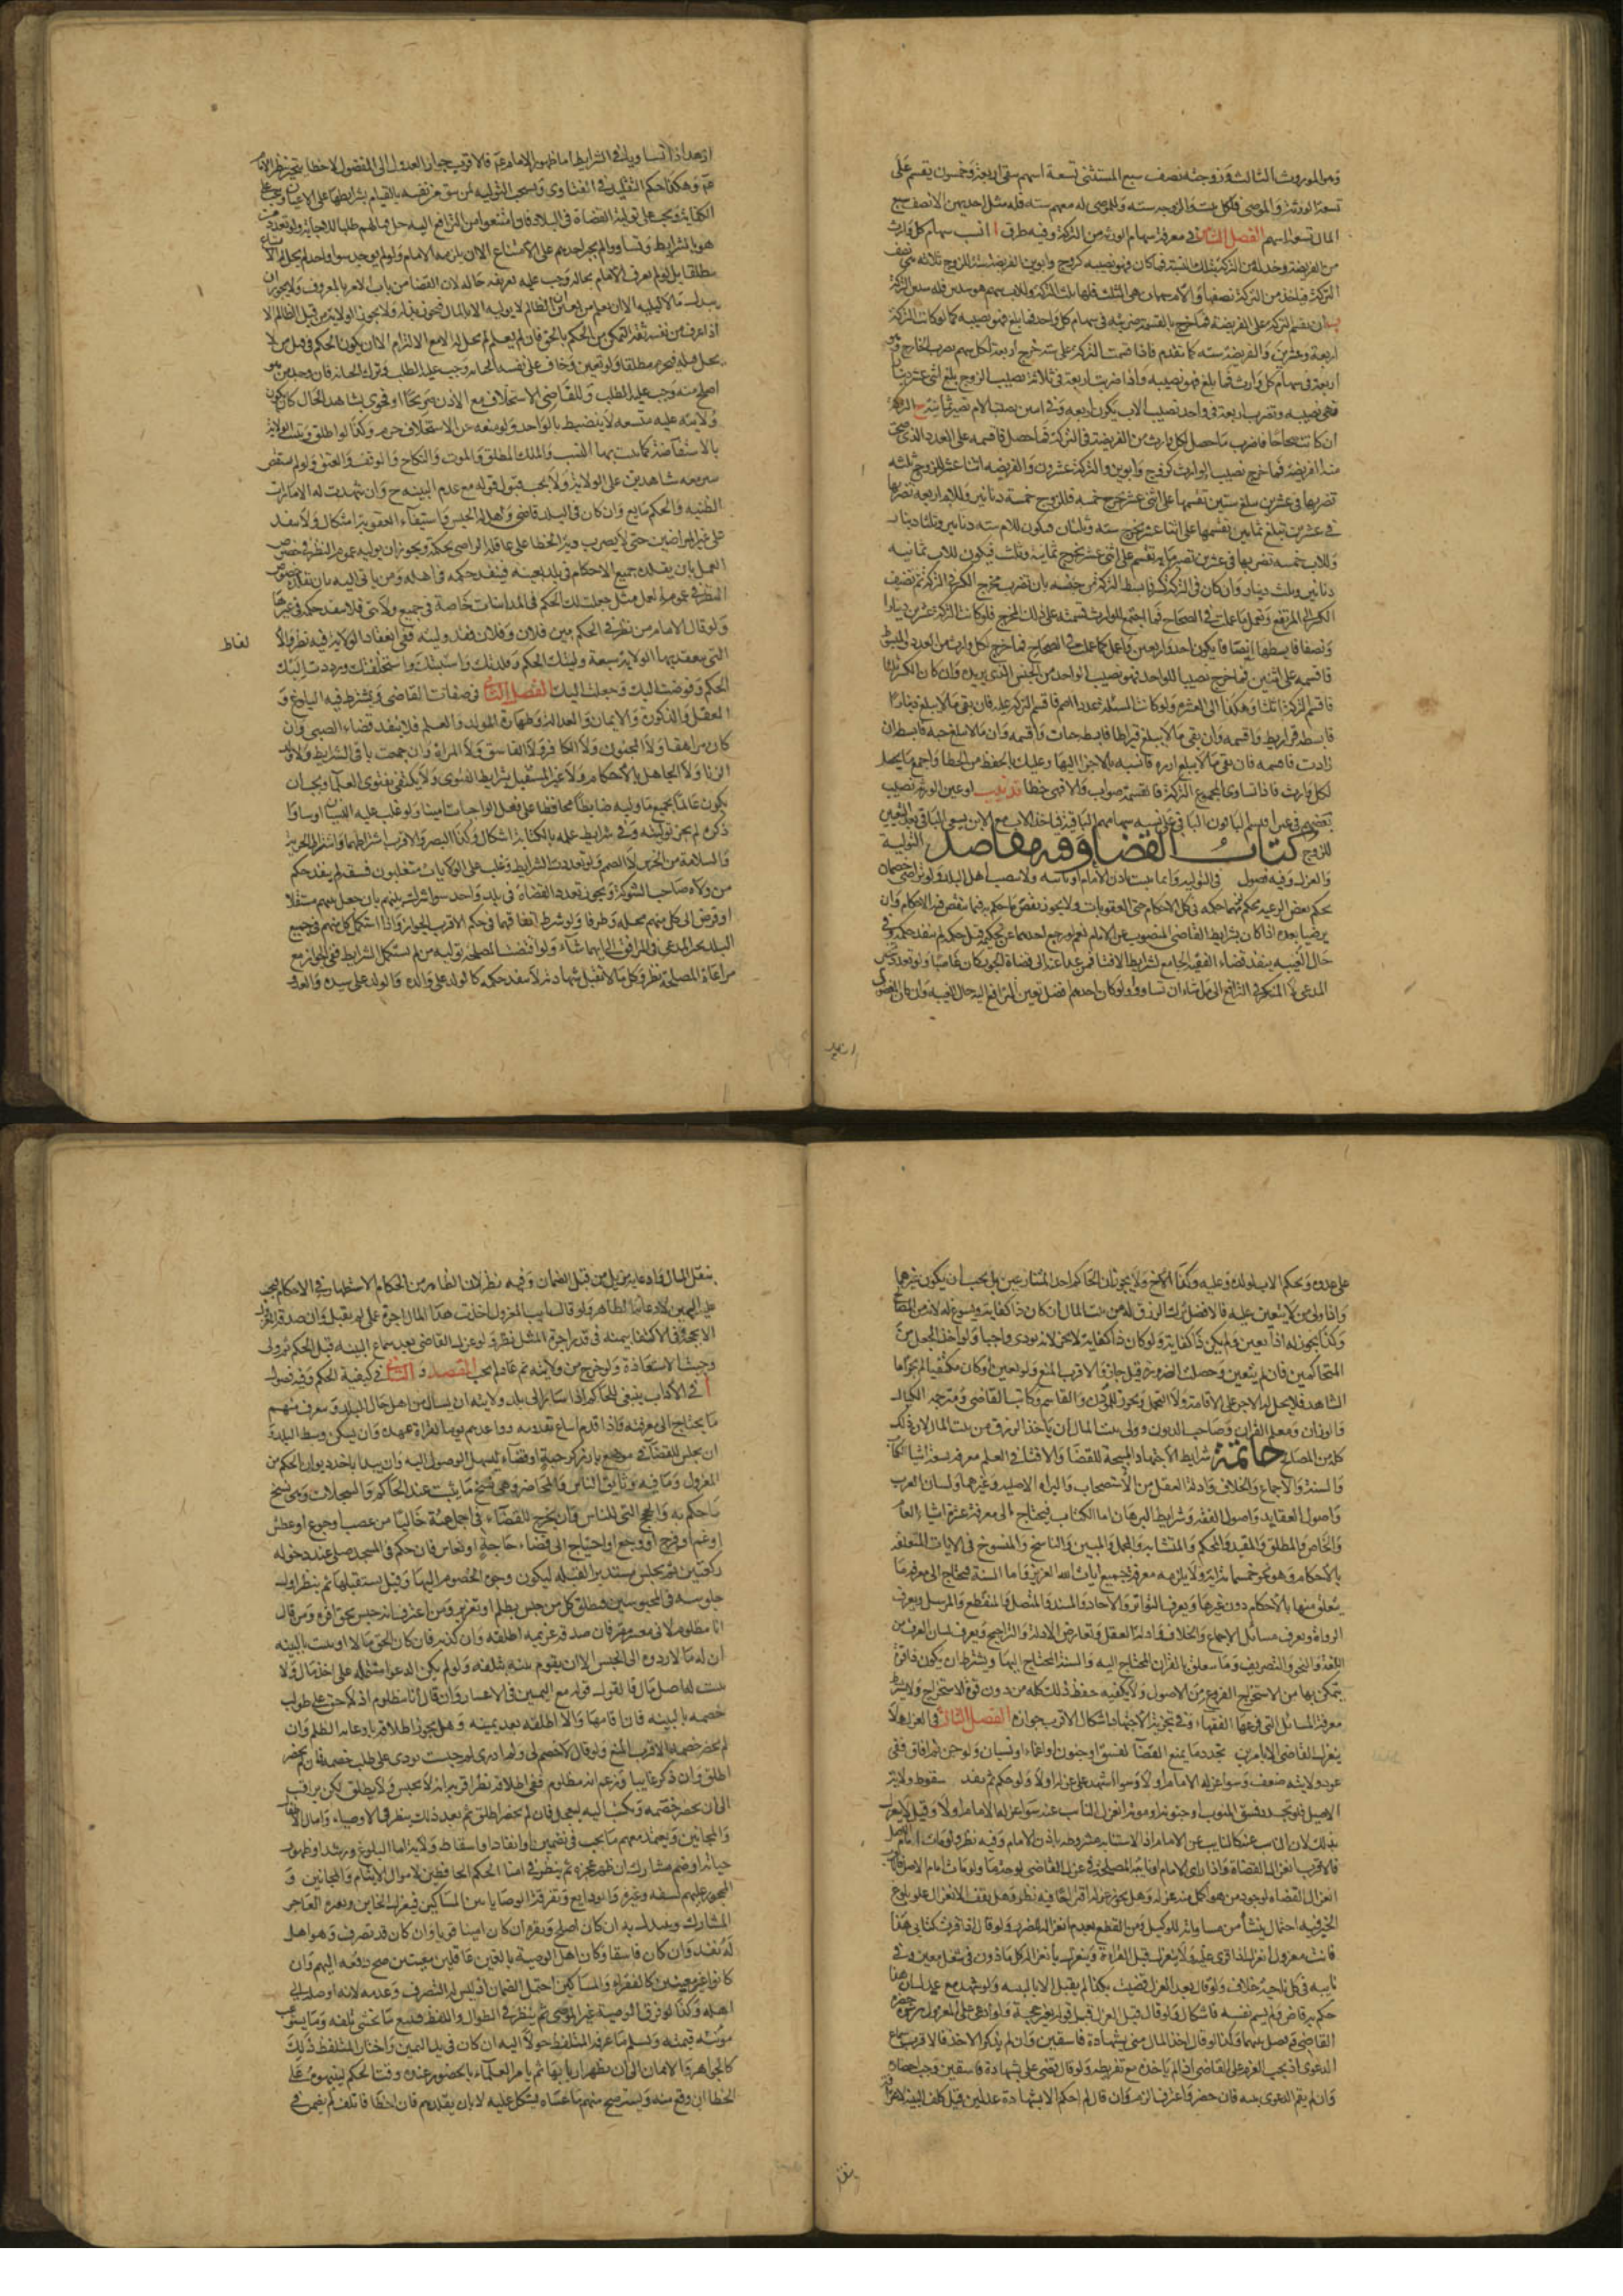 ومن الموروث الثالث وزوجته نصف سبع المستثنى تسعة اسهم يبقى اربعة وخمسون يقسم على
تسعة الورثة والموصى فلكل ستة وللزوجه سته وللموصى له معهم سته فله مثل احديهن الا نصف سبع
المال تسعة اسهم الفصل الثالث في معرفة سهام الورثة من التركة وفيه طرق ا انسب سهام كل وارث
من الفريضة وخذ له من التركة بتلك النسبة فما كان فهو نصيبه كزوج وابوين الفريضة ستة للزوج ثلاثه هي نصف
التركة فيأخذ من التركة نصفها وللام سهمان هي الثلث فلها ثلث التركة وللاب سهم هو سدس فله سدس التركة
ب ان يقسم التركة على الفريضة فما خرج بالقسمة ضربته في سهام كل واحد فما بلغ فهو نصيبه كما لو كانت التركة
اربعة وعشرين والفريضة سته كما تقدم فاذا قسمت التركة على ستة خرج اربعة لكل سهم
اربعة في سهام كل وارث فما بلغ فهو نصيبه واذا ضربت اربعة في ثلاثة نصيب الزوج بلغ اثنى عشر دينارا
فهي نصيبه وتضرب اربعة في واحد نصيب الاب يكون اربعه وفي اثنين نصيب الام تصير ثمانية ج التركة
ان كانت صحاحا فاضرب ما حصل لكل وارث من الفريضة في التركة فما حصل فاقسمه على العدد الذي صحت
منه الفريضة فما خرج نصيب الوارث كزوج وابوين والتركة عشرون والفريضه اثنا عشر للزوج ثلثه
تضربها في عشرين يبلغ ستين تقسمها على اثنى عشر يخرج خمسه فللزوج خمسة دنانير وللام اربعه تضربها
في عشرين تبلغ ثمانين تقسمها على اثنا عشر يخرج ستة وثلثان فيكون للام سته دنانير وثلثا دينار
وللاب خمسه تضربها في عشرين تصير مايه تقسم على اثنى عشر يخرج ثمانية وثلث فيكون للاب ثمانيه
دنانير وثلث دينار وان كان في التركة كسر فابسط التركة من جنسه بان تضرب مخرج الكسر في التركة ثم تضيف
الكسر الى المرتفع وتعمل ما عملت في الصحاح فما اجتمع للوارث قسمته على ذلك المخرج فلو كانت التركة عشرين دينارا
ونصفا فابسطها انصافا يكون احدا واربعين واعمل كما عملت في الصحاح فما خرج لكل وارث من العدد المبسوط
فاقسمه على اثنين فما خرج نصيبا للواحد فهو نصيب الواحد من الجنس الذي يريد وان كان الكسر ثلثا
فاقسم التركة اثلاثا وهكذا الى العشر ولو كانت المسئلة عددا اصم فاقسم التركة عليه فان بقي مالا يبلغ دينارا
فابسطه قراريط واقسمه وان بقي مالا يبلغ قيراطا فابسطه حبات واقسمه وان مالا يبلغ حبه فابسطه ان
زادت فاقسمه فان بقي ما لا يبلغ ارزه فانسبه بالاجزاء اليها وعليك بالتحفظ من الخطا واجمع ما يحصل
لكل وارث فاذا تساوى المجموع التركة فالقسمة صواب والا فهي خطا تذنيب لو عين الورثة نصيب
بعضهم في عين اقتسم الباقون الباقي على نسبه سهامهم الباقية
للزوج كتاب القضاء وفيه مقاصد التولية
والعزل وفيه فصول في التوليه وانما يثبت باذن الامام او نائبه ولا نصب اهل البلد ولو تراضى خصمان
بحكم بعض الرعيه بحكم لزمهما حكمه في كل الاحكام حتى العقوبات ولا يجوز نقض ما حكم به فيما لا ينقض فيه الاحكام وان
لم يرضيا بعده اذا كان بشرايط القاضي المنصوب عن الامام نعم لو رجع احدهما عن تحكيمه قبل حكمه لم ينفذ حكمه وفي
حال الغيبه ينفذ قضاء الفقيه الجامع لشرايط الافتاء فمن عدل عنه الى قضاة الجور كان عاصيا ولو تعدد تخير
المدعي لا المنكر في الترافع الى من شاء ان تساووا ولو كان احدهم افضل تعين الترافع اليه حال الغيبه وان كان المفضول
ازهد اذا تساويا في الشرايط اما ظهور الامام ع فالاقرب جواز العدول الى المفضول لان خطاه ينجبر بنظر الامام
ع وهكذا حكم التقليد في الفتاوى ويستحب التوليه لمن يثق من نفسه بالقيام بشرايطها على الاعيان وتجب على
الكفاية ويجب على تولية القضاة في البلاد فان امتنعوا من الترافع اليه حل قتالهم طلبا للاجابة ولو تعدد من
هو بالشرايط وتساووا لم يجبر احدهم على الامتناع الا ان يلزمه الامام ولو لم يوجد سوا واحد لم يحل له الامتناع
مطلقا بل لو لم يعرف الامام بحاله وجب عليه تعريف حاله لان القضا من باب الامر بالمعروف ولا يجوز ان
يبذل مالا ليليه الا ان يعلم من نفسه ان الظالم لا يوليه الا بالمال فيجوز بذله ولا يجوز الولاية من قبل الظالم الا
اذا عرف من نفسه التمكن من الحكم بالحق فان لم يعلم لم يحل له الا مع الالزام الا ان يكون الحكم في قتل من لا
يحل قتله فيحرم مطلقا ولو تعين وخاف على نفسه الخيانة وجب عليه الطلب وترك الخيانة فان وجد من هو
اصلح منه وجب عليه الطلب وللقاضي الاستخلاف مع الاذن صريحا او فحوى او شاهد الحال كان يكون
ولايته عليه متسعه لا ينضبط بالواحد ولو منعه عن الاستخلاف حرم وكذا لو اطلق ويثبت الولاية
بالاستفاضة كما يثبت بها النسب والملك المطلق والموت والنكاح والوقف والعتق ولو لم يستفض
سير معه شاهدين على الولاية ولا يجب قبول قوله مع عدم البينه ح وان شهدت له الامارات
الظنية والحكم ما يع وان كان في البلد قاضي وهل له الحبس واستيفاء العقوبة اشكال ولا ينفذ
على غير المتراضيين حتى لا يضرب دية الخطا على عاقلة الراضي بحكمه ويجوز ان يوليه عموم النظر في خصوص
العمل بان يقلده جميع الاحكام في بلد بعينه فينفذ حكمه في اهله ومن ياتي اليه بان يقلده خصوص
النظر في عموم العمل مثل جعلت لك الحكم في المداينات خاصة في جميع ولايتي فلا ينفذ حكمه في غيرها
ولو قال الامام من نظر في الحكم بين فلان وفلان فقد وليته ففي انعقاد الولاية فيه نظر والالفاظ
التي ينعقد بها الولاية سبعة وليتك الحكم وقلدتك واستنبتك واستخلفتك ورددت اليك
الحكم وفوضت اليك وجعلت اليك الفصل الثاني في صفات القاضي ويشترط فيه البلوغ و
العقل والذكورة والايمان والعدالة وطهارة المولد والعلم فلا ينفذ قضاء الصبي وان
كان مراهقا ولا المجنون ولا الكافر ولا الفاسق ولا المراة وان جمعت باقي الشرايط ولا ولد
الزنا ولا الجاهل بالاحكام ولا غير المستقل بشرايط الفتوى ولا يكتفي بفتوى العلماء ويجب ان
يكون عالما بجميع ما وليه ضابطا محافظا على فعل الواجبات امينا ولو غلب عليه النسيان او ساوا
ذكره لم يجز توليته وفي شرايط علمه بالكتابة اشكال وكذا البصر والاقرب اشتراطهما واشتراط الحرية
والسلامة من الخرس لا الصمم ولو تعذرت الشرايط وغلب على الولايات متغلبون فسقه لم ينفذ حكم
من ولاه صاحب الشوكة ويجوز تعدد القضاة في بلد واحد سوا شرك بينهم بان جعل كل منهم مستقلا
او فوض الى كل منهم محله وطرفا ولو شرط اتفاقهما في حكم الاقرب الجواز واذا استكمل كل منهم في جميع
البلد تخير المدعي في المرافعة الى ايهما شاء ولو اقتضت المصلحة توليه من لم يستكمل الشرايط ففي الجواز مع
مراعاة المصلحة نظر وكل من لا تقبل شهادته لا ينفذ حكمه كالولد على والده والعبد على سيده والعدو
على عدوه ويحكم الاب لولده وعليه وكذا الاخ ولا يجوز ان يكون الحاكم احد المتنازعين بل يجب ان يكون غيرهما
واذا ولى من لا يتعين عليه فالافضل ترك الرزق له من بيت المال ان كان ذا كفاية ويسوغ له لانه من المصالح
وكذا يجوز له اذا تعين ولم يكن ذا كفاية ولو كان ذا كفاية لا يجز لانه يودى واجبا ولو اخذ الجعل من
المتحاكمين فان لم يتعين وحصلت الضرورة قيل جاز والاقرب المنع ولو تعين او كان مكتفيا لم يجز اما
الشاهد فلا يحل له الاجر على الاقامة ولا التحمل ويجوز للمؤذن والقاسم وكاتب القاضي ومترجمه الكيال
والوزان ومعلم القران وصاحب الديون ووالى بيت المال ان ياخذ الرزق من بيت المال لان ذلك
كله من المصالح خاتمة شرايط الاجتهاد المبيحة للقضا والافتا في العلم معرفه تسعة اشيا الكتاب
والسنة والاجماع والخلاف وادلة العقل من الاستصحاب والبراه الاصليه وغيرهما ولسان العرب
واصول العقايد واصول الفقه وشرايط البرهان اما الكتاب فيحتاج الى معرفة عشرة اشياء العام
والخاص والمطلق والمقيد والمحكم والمتشابه والمجمل والمبين والناسخ والمنسوخ في الايات المتعلقه
بالاحكام وهو نحو خمسمائة اية ولا يلزمه معرفة جميع ايات الله العزيز واما السنة فيحتاج الى معرفة ما
يتعلق منها بالاحكام دون غيرها ويعرف المتواتر والاحاد والمسند والمتصل والمنقطع والمرسل ويعرف
الرواة ويعرف مسائل الاجماع والخلاف وادلة العقل وتعارض الادلة والتراجيح ويعرف لسان العرب من
اللغة والنحو والتصريف وما يتعلق بالقران المحتاج اليه والسنة المحتاج اليها ويشترط ان يكون ذا قوة
يتمكن بها من الاستخراج الفروع من الاصول ولا يكفيه حفظ ذلك كله من دون قوة الاستخراج ولا يشترط
معرفة المسائل التي فرعها الفقهاء وفي تجزية الاجتهاد اشكال الاقرب جوازه الفصل الثالث في العزل
ينعزل القاضي بامرين تجدد ما يمنع القضا لفسق او جنون او اغماء او نسيان ولو جن ثم افاق ففي
عود ولايته ضعف وسقوط ولايه
الاصيل فلو تجدد فسق المنوب او جنونه او موته انعزل النائب
بذلك لان النائب عنه كالنايب عن الامام اذ الاستنابه مشروطه باذن الامام وفيه نظر ولو مات امام الاصل
فالاقرب انعزال القضاة واذا راى الامام او نايبه المصلحة في عزل القاضي لوجه ما
انعزال القضاه لوجود من هو اكمل منه عزله وهل يجوز عزله اقتراحا فيه نظر وهل يقف الانعزال على بلوغ
الخبر فيه احتمال ينشأ من مساواته للوكيل ومن القطع بعدم انعزاله للضرر ولو قال اذا قرأت كتابي هذا
فانت معزول انعزل اذا قرى عليه ولا ينعزل قبل القراءة وينعزل بانعزاله كل ماذون في شغل معين وفي
نايبه في كل ناحية خلاف ولو قال بعد العزل قضيت بكذا لم يقبل الا بالبينه ولو شهد مع عدل ان هذا
حكم به قاض ولم يسم نفسه فاشكال ولو قال قبل العزل قبل قوله بغير حجة ولو ادعى على المعزول
القاضي فصل بينهما وكذا لو قال اخذ المال مني بشهادة فاسقين وان لم يذكر الاخذ فالاقرب سماع
الدعوى اذ يجب الغرم على القاضي اذا لم ياخذه مع تفريطه ولو قال قضى علي بشهادة فاسقين وجب احضاره
وان لم يقم المدعي بينه فان حضر واعترف الزم وان قال لم احكم الا بشهادة عدلين قيل كلف البينة
بنقل المال وادعايه مزيل من قبل الضمان وفيه نظر لان الظاهر من الحكام الاستظهار في الاحكام فيجب
عليه اليمين لادعائه الظاهر ولو قال نايب المعزول اخذت هذا المال اجرة عملي لم يقبل وان صدقه المعزول
الا بحجة وفي الاكتفا بيمينه في قدر اجرة المثل نظر ولو عزل القاضي بعد سماع البينه قبل الحكم ثم ولى
وجبت الاستعاذة ولو خرج من ولايته ثم عاد لم تجب المقصد الثاني في كيفية الحكم وفيه فصول
ا في الاداب ينبغي للحاكم اذا سار الى بلد ولايته ان يسال من اهله حال البلد ويعرف منهم
ما يحتاج الى معرفته فاذا قدم اشاع قدومه وواعدهم يوما لقراة عهده وان يسكن وسط البلد
ان يجلس للقضا في موضع بارز كرحبة او فضاء ليسهل الوصول اليه وان يبدا باخذ ديوان الحكم من
المعزول وما فيه وثايق الناس والمحاضر وهي نسخ ما يثبت عند الحاكم والسجلات وهي نسخ
ما حكم به والحجج التي للناس فان يخرج للقضاء في اجمل هيئة خاليا من غضب او جوع او عطش
او غم او فرح او وجع او احتياج الى قضاء حاجة او نعاس فان حكم في المسجد صلى عند دخوله
ركعتين ثم يجلس مستدبر القبلة ليكون وجوه الخصوم اليها وقيل يستقبلها ثم ينظر اول
جلوسه في المحبوسين فيطلق كل من حبس بظلم او تعزير ومن اعترف انه حبس بحق اقره ومن قال
انا مظلوم لاني معسر فان صدقه غريمه اطلقه وان كذبه فان كان الحق مالا او ثبت بالبينه
ان له مالا رده الى الحبس الا ان يقوم بينه بتلفه ولو لم يكن الدعوى مشتمله على اخذ مال ولا
ثبت له اصل مال فالقول قوله مع اليمين في الاعسار وان قال انا مظلوم اذ لا حق علي طولب
خصمه بالبينه فان اقامها والا اطلقه بعد يمينه وهل يجوز اطلاقه بادعائه الظلم وان
لم يحضر خصمه الاقرب المنع ولو قال لا خصم لي ولم ادرى لم حبست نودى على طلب خصمه فان لم يحضر
اطلق وان ذكر غايبا وزعم انه مظلوم ففي اطلاقه نظر اقربه انه لا يحبس ولا يطلق لكن يراقب
الى ان يحضر خصمه ويكتب اليه ليعجل فان لم يحضر اطلق ثم بعد ذلك ينظر في الاوصياء واموال الاطفال
والمجانين ويعتمد معهم ما يجب في تضمين او انفاذ او اسقاط ولاية اما لبلوغ ورشد او ظهور
خيانة او ضم مشارك ان ظهر عجزه ثم ينظر في امنا الحكم الحافظين لاموال الايتام والمجانين و
المحجور عليهم لسفه وغيره والودايع وتفرقة الوصايا بين المساكين فيعزل الخاين ويعين العاجز
المشارك ويبدل به ان كان اصلح ويقره ان كان امينا قويا وان كان قد تصرف وهو اهل
له نفذ وان كان فاسقا وكان اهل الوصية بالغين عاقلين معينين صح دفعه اليهم وان
كانوا غير معينين كالفقراء والمساكين احتمل الضمان اذ ليس له التصرف وعدمه لانه اوصله الى
اهله وكذا لو فرق الوصية غير الموصى ثم ينظر في الضوال واللقط فيبيع ما يخشى تلفه وما يستوعب
مؤنته قيمته ويسلم ما عرفه الملتقط حولا اليه ان كان في يد امين واختار الملتقط ذلك
كالجواهر والاثمان الى ان يظهر اربابها ثم يامر العلماء بالحضور عنده وقت الحكم لينبهوه على
الخطا ان وقع منه ويستوضح منهم ما عساه يشكل عليه لا بان يقلدهم فان اخطا فاتلف لم يضمن في